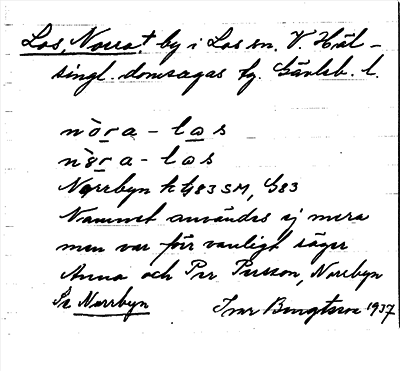 Los, Norra † by i Los sn. V. Häl-
singl. domsagas tg. Gävleb. l.
nòra - las
nòra - las
Norrbyn k G83 SM, G83
Namnet användes ej mera
men var förr vanligt säger
Anna och Per Persson, Norrbyn
Se Norrbyn Ivar Bengtsson 1937